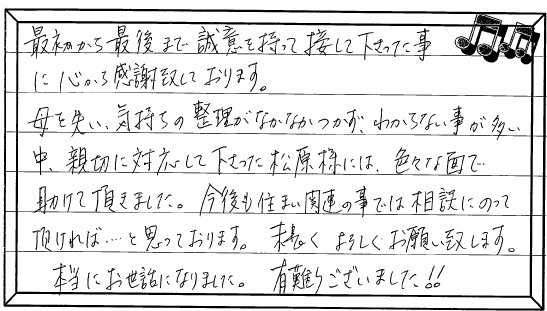 最初から最後まで誠意を持って接して下さった事
に心から感謝致しております。
母を失い、気持ちの整理がなかなかつかず、わからない事が多い
中、親切に対応して下さった松原様には、色々な面で
助けて頂きました。今後も住まい関連の事では相談にのって
頂ければ…と思っております。末長くよろしくお願い致します。
本当にお世話になりました。有難うございました!!